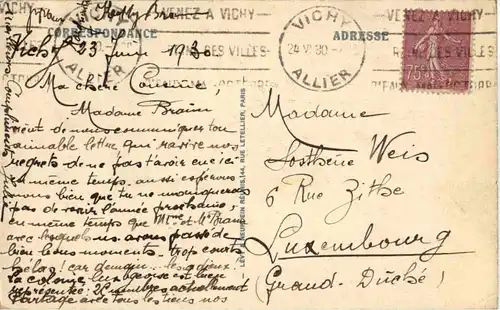 CORRESPONDANCE
ADRESSE
VENEZ A VICHY
VICHY
24 VI 30
ALLIER
VENEZ A VICHY
75
Vichy 23 Juin 1930
Ma chère Cousine,
Madame Braun
vient de nous communiquer ton
aimable lettre qui ravive nos
regrets de ne pas t'avoir eue ici
en même temps, aussi espérons
nous bien que tu ne manqueras
pas de venir l'année prochaine,
en même temps que Mme et Mr Braun
avec lesquels nous avons passé de
bien bons moments, trop courts
hélas! car demain les adieux.
La colonie est bien
représentée: 26 membres actuellement
Partage avec tous les tiens nos
LEVY & NEURDEIN REUNIS, 44, RUE LETELLIER, PARIS
Madame
Sosthène Weis
6 Rue Zithe
Luxembourg
(Grand-Duché)